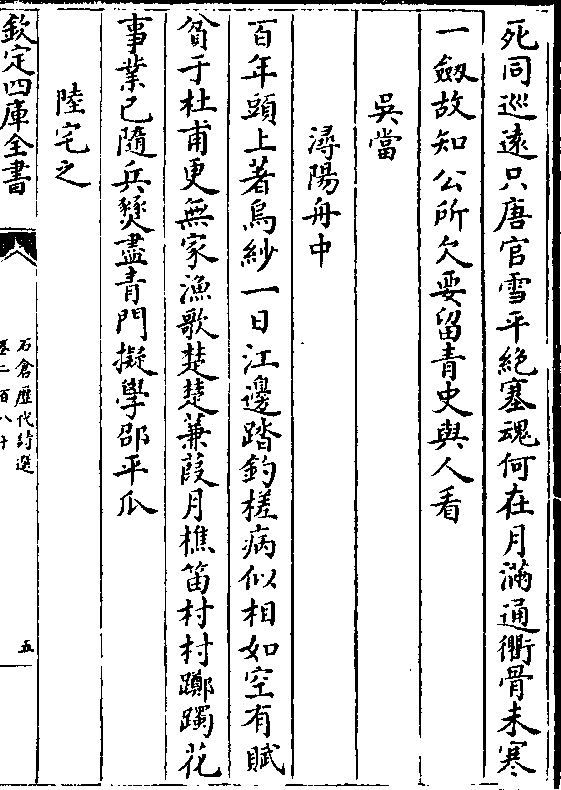 死同巡遠只唐官雪平絶塞魂何在月滿通衢骨未寒
一劔故知公所欠要留青史與人看
吳當
潯陽舟中
百年頭上著烏紗一日江邊踏釣槎病似相如空有賦
貧于杜甫更無家漁歌楚楚蒹葭月樵笛村村躑躅花
事業已隨兵燹盡青門擬學邵平瓜
陸宅之
欽定四庫全書
石倉歴代詩選
卷二百八十
五